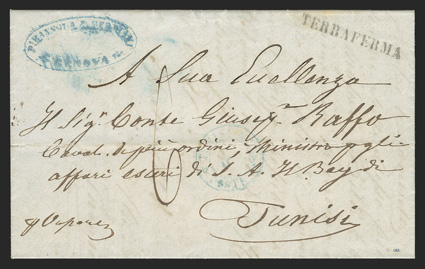 GENOVA
TERRAFERMA
A Sua Eccellenza
Il Sigr. Conte Giusepe. Raffo
Caval. di più ordini Ministro p gli
affari esteri di S. A. Il Bey di
Tunisi
p Vapore